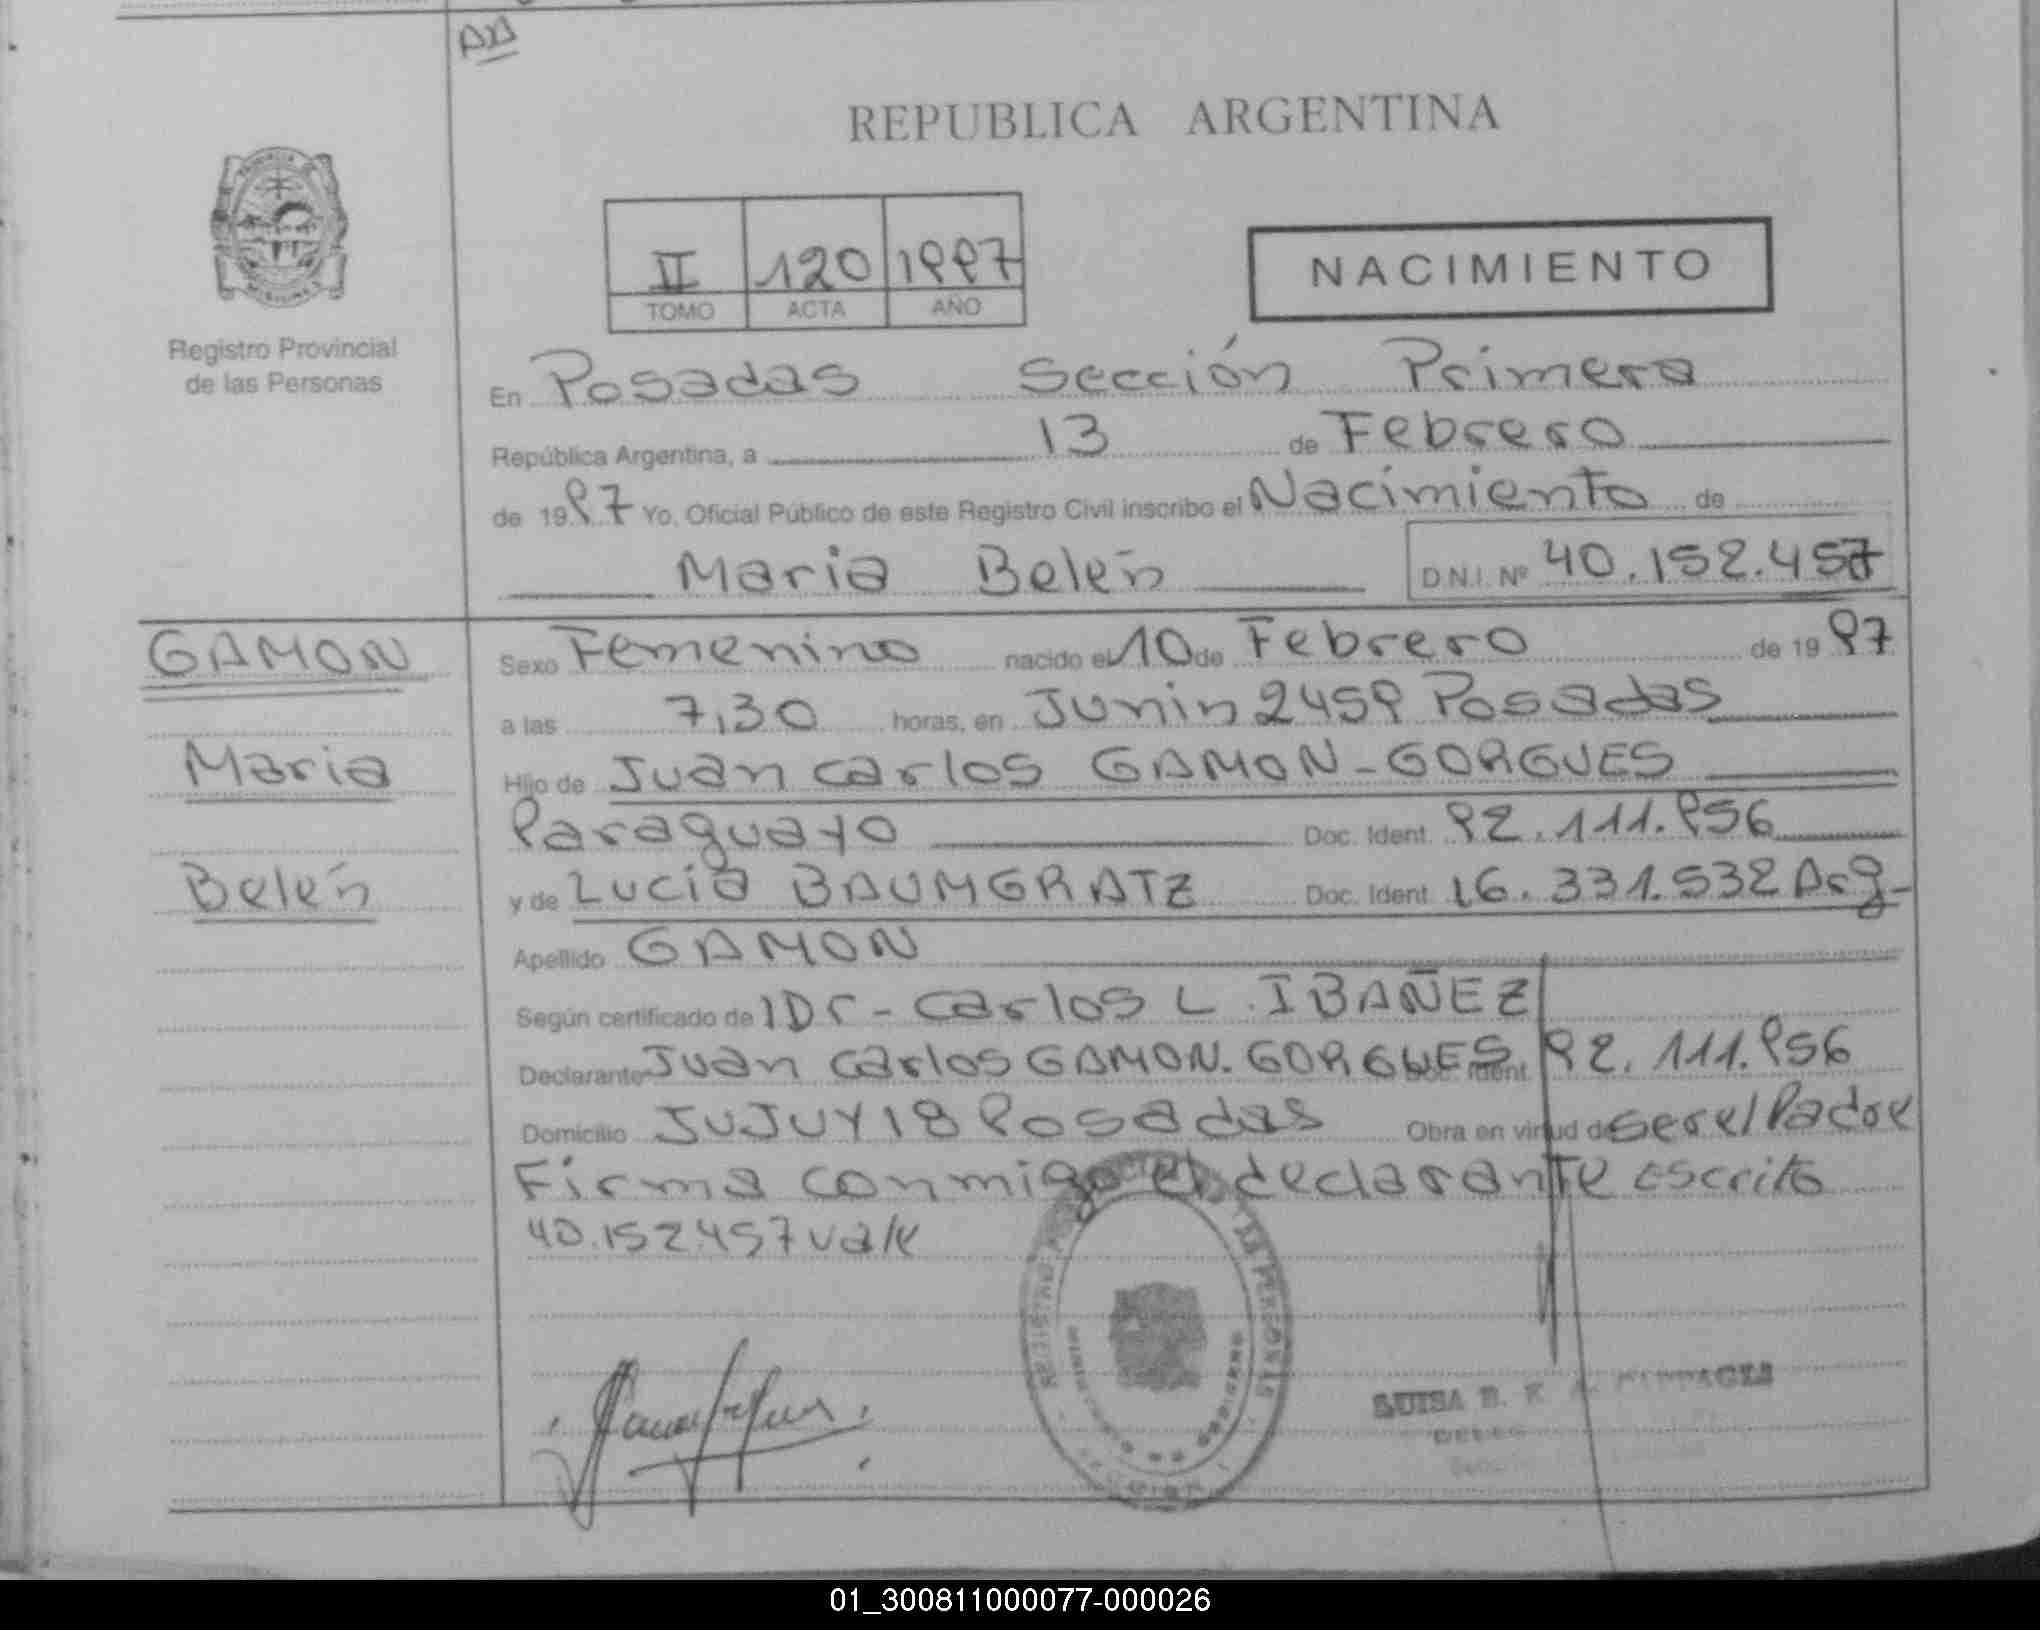 REPUBLICA ARGENTINA
II 120 1997
TOMO ACTA AÑO
NACIMIENTO
Registro Provincial
de las Personas
En Posadas Sección Primera
República Argentina, a 13 de Febrero
de 1997 Yo, Oficial Público de este Registro Civil inscribo el Nacimiento de
Maria Belén D.N.I. Nº 40.152.457
GAMON
Maria
Belén
Sexo Femenino nacido el 10 de Febrero de 1997
a las 7,30 horas, en Junin 2459 Posadas
Hijo de Juan Carlos GAMON-GORGUES
Paraguayo Doc. Ident. 92.111.956
y de Lucia BAUMGRATZ Doc. Ident. 16.331.532 Arg-
Apellido GAMON
Según certificado de 1Dr- Carlos L. IBAÑEZ
Declarante Juan Carlos GAMON. GORGUES Doc. Ident. 92.111.956
Domicilio JUJUY 18 Posadas Obra en virtud de ser el Padre
Firma conmigo el declarante escrito
40.152.457 vale
LUISA
01_300811000077-000026